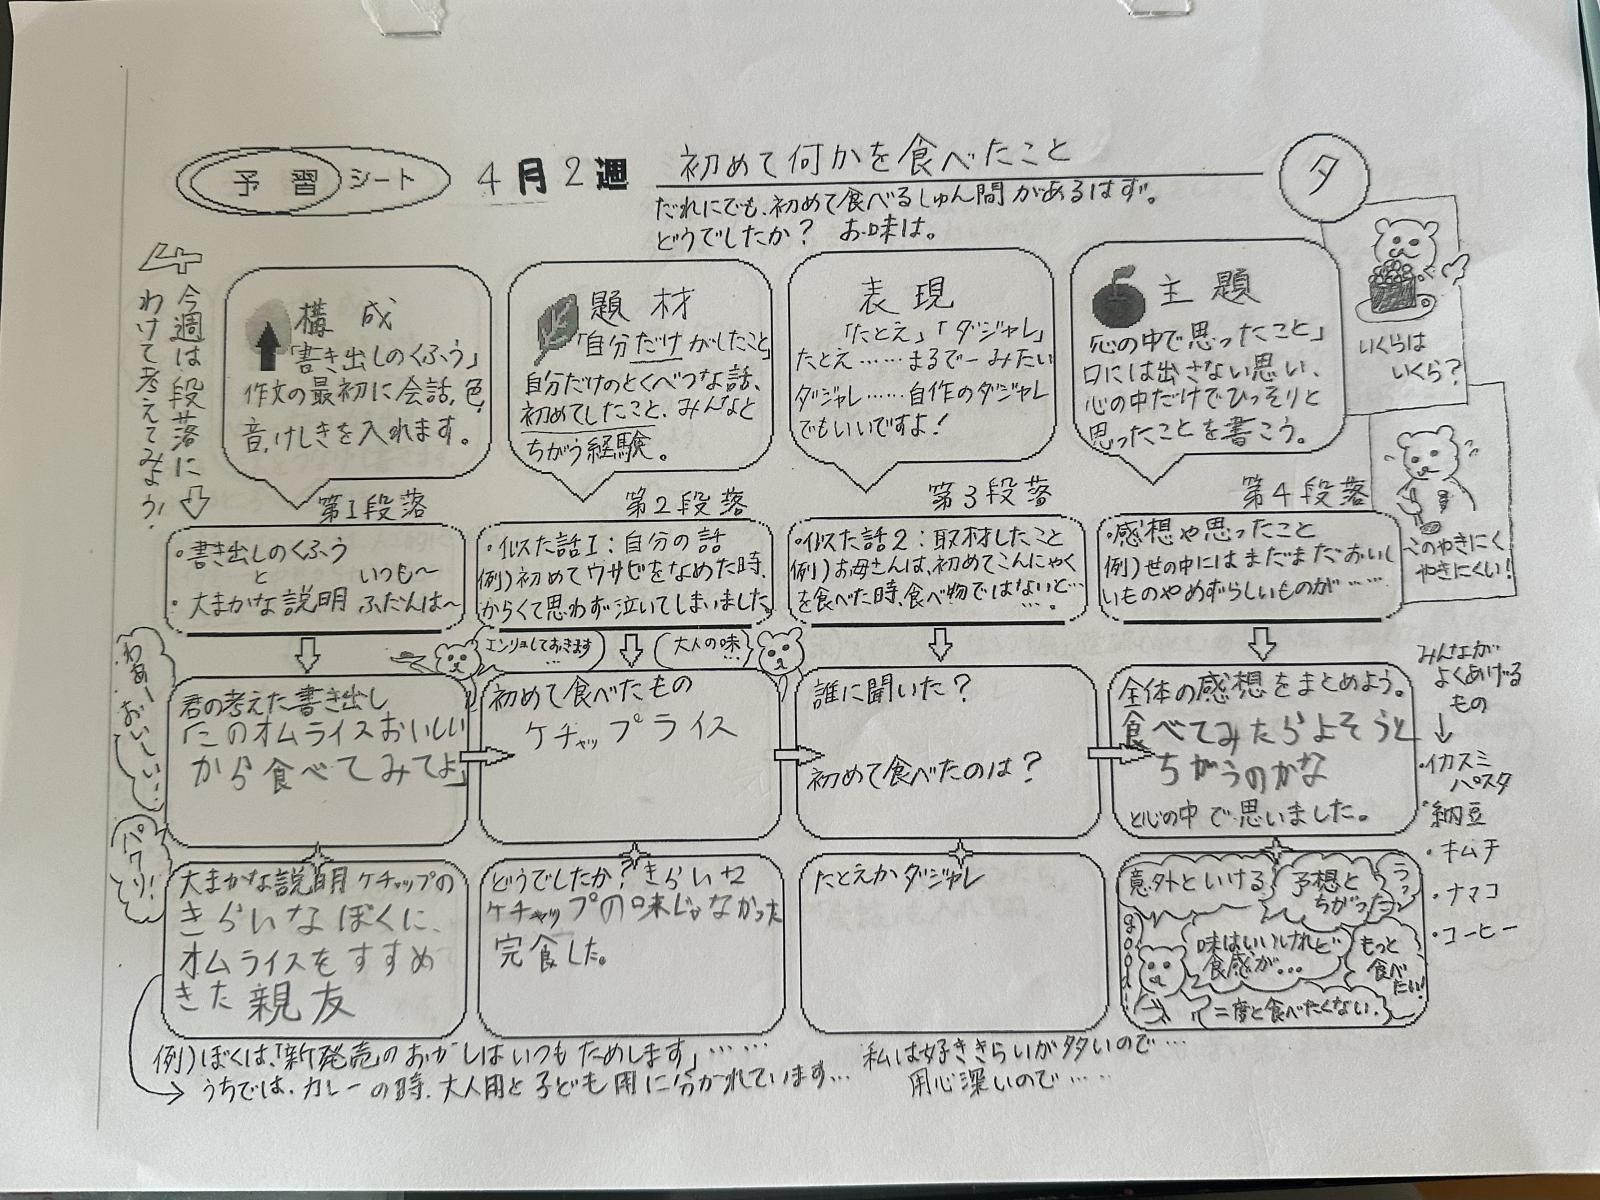 予習シート 4月2週 初めて何かを食べたこと タ
だれにでも、初めて食べるしゅん間があるはず。
どうでしたか? お味は。
今週は段落に
わけて考えてみよう!
構成
「書き出しのくふう」
作文の最初に会話,色,
音,けしきを入れます。
題材
「自分だけがしたこと」
自分だけのとくべつな話、
初めてしたこと、みんなと
ちがう経験。
表現
「たとえ」「ダジャレ」
たとえ……まるでーみたい
ダジャレ……自作のダジャレ
でもいいですよ!
主題
「心の中で思ったこと」
口には出さない思い、
心の中だけでひっそりと
思ったことを書こう。
いくらは
いくら?
このやきにく
やきにくい!
第1段落
・書き出しのくふう
と
・大まかな説明 いつも〜
ふだんは〜
第2段落
・似た話1:自分の話
例)初めてワサビをなめた時、
からくて思わず泣いてしまいました
第3段落
・似た話2:取材したこと
例)お母さんは、初めてこんにゃく
を食べた時、食べ物ではないと…
……。
第4段落
・感想や思ったこと
例)世の中にはまだまだおいし
いものやめずらしいものが……
エンリョしておきます
…
大人の味
…
わぁーおいしい…
パクリ!
君の考えた書き出し
「このオムライスおいしい
から食べてみてよ」
初めて食べたもの
ケチャップライス
誰に聞いた?
初めて食べたのは?
全体の感想をまとめよう。
食べてみたらよそうと
ちがうのかな
と心の中で思いました。
みんなが
よくあげる
もの
・イカスミ
パスタ
・納豆
・キムチ
・ナマコ
・コーヒー
大まかな説明 ケチャップの
きらいなぼくに、
オムライスをすすめ
きた親友
どうでしたか? きらいな
ケチャップの味じゃなかった
完食した。
たとえかダジャレ
意外といける
予想と
ちがった
good!
味はいいけれど
食感が…
もっと
食べ
たい!
二度と食べたくない.
例)ぼくは、「新発売」のおかしはいつもためします」……
うちでは、カレーの時、大人用と子ども用に分かれています…
私は好ききらいが多いので…
用心深いので……